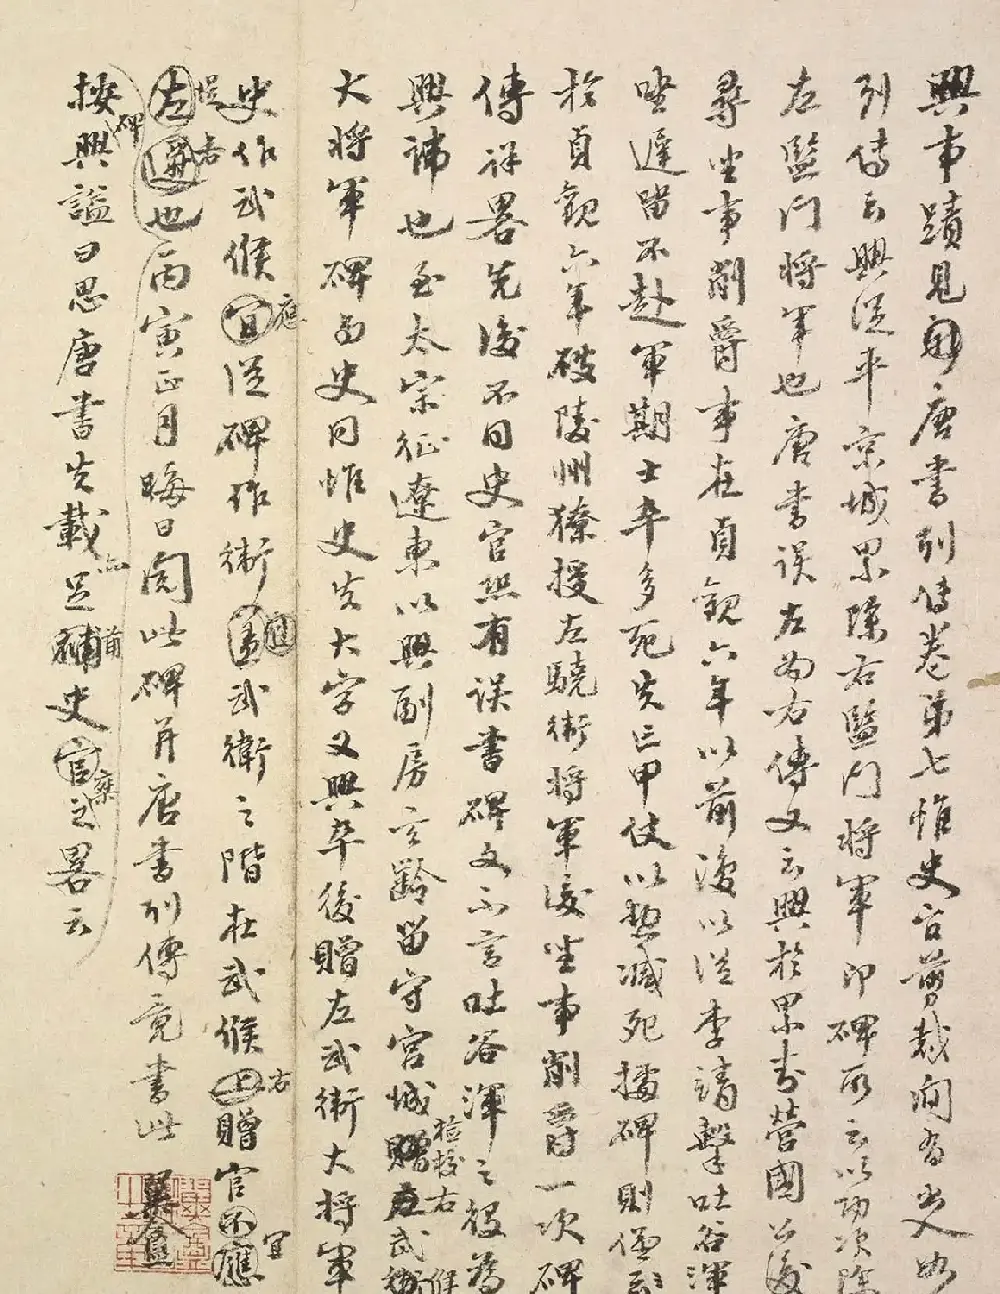 興事蹟見舊唐書列傳卷第七惟史官剪裁間有出入如
列傳云興從平京城累除右監門將軍即碑所云以功次除
左監門將軍也唐書誤左為右傳又云興於累封營國公後
尋坐事削爵事在貞觀六年以前後以從李靖擊吐谷渾
坐遲留不赴軍期士卒多死失亡甲仗以勳減死據碑則僅
於貞觀六年破陵州獠授左驍衛將軍後坐事削爵一次碑
傳詳略先後不同史官然有誤書碑文不言吐谷渾之役為
興諱也至太宗征遼東以興副房玄齡留守宮城檢校右武候
大將軍碑與史同惟史失大字又興卒後贈左武衛大將軍
史作武候宜應從碑作衛武衛之階在武候上右贈官不應宜
左遷也丙寅正月晦日閱此碑并唐書列傳竟書此
按興謚曰思唐書失載碑足補史官之略云